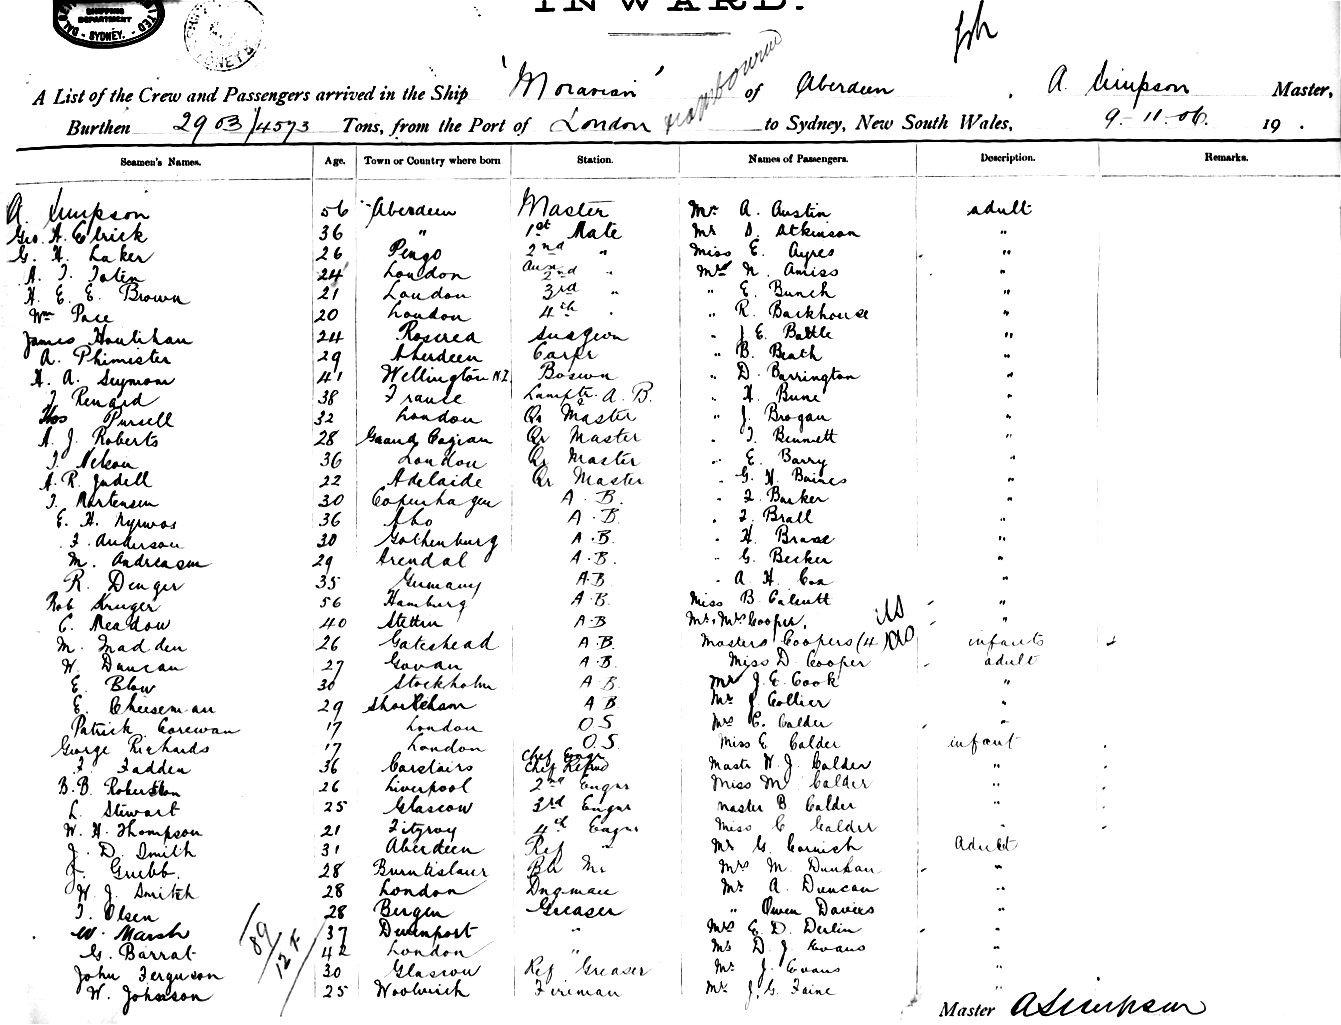 SHIPPING DEPARTMENT SYDNEY.
INWARD.
A List of the Crew and Passengers arrived in the Ship 'Moravian' of Aberdeen, A. Simpson Master,
Burthen 2903/4573 Tons, from the Port of London to Sydney, New South Wales, 9-11-06. 19 .
Seamen's Names. Age. Town or Country where born Station. Names of Passengers. Description. Remarks.
A. Simpson 56 Aberdeen Master Mr. A. Austin adult
Geo. A. Elrick 36 " 1st Mate Mr D. Atkinson "
G. H. Laker 26 Penge 2nd " Miss E. Ayres "
A. T. 24 London Aux 2nd " Mrs N. Amiss "
H. E. E. Brown 21 London 3rd " " E. Bunch "
Wm Pace 20 London 4th " " R. Backhouse "
James Houlihan 24 Roscrea Surgeon " J E. Battle "
A. Phimister 29 Aberdeen Carpr " B. Beath "
H. A. Seymour 41 Wellington N.Z. Boswn " D. Barrington "
T. Renard 38 France Lamptr & A. B. " H. Bune "
Thos Pursell 32 London Qr Master " J. Brogan "
A. J. Roberts 28 Grand Qr Master " T. Bennett "
T. Nelson 36 London Qr Master " E. Barry "
A. R. Judell 22 Adelaide Qr Master " G. H. Baines "
T. Mortensen 30 Copenhagen A. B. " F. Barker "
E. H. 36 Abo A. B. " F. Brall "
F. Anderson 30 Gothenburg A. B. " H. Brase "
M. Andreasen 29 Arendal A. B. " G. Becker "
R. Denger 35 Germany A.B. " A. H. Cox "
Rob Kruger 56 Hamburg A.B. Miss B. Calcutt "
C. Meadow 40 Stettin A.B Mr. Mrs Cooper, "
M. Madden 26 Gateshead A.B. Masters Coopers (4) infants
W. Duncan 27 Govan A.B. Miss D. Cooper adult
E. Blow 30 Stockholm A.B. Mr J. E. Cook "
E. Cheeseman 29 A B Mr. J. Collier "
Patrick Corewan 17 London O S Mrs C. Calder "
George Richards 17 London O.S. Miss E Calder infant
F Fadden 36 Carstairs Chef Engr Chef Refrd Mastr W. J. Calder "
B. B. Robertson 26 Liverpool 2nd Engnr Miss M. Calder "
L. Stewart 25 Glasgow 3rd Engnr Master B Calder "
W. H. Thompson 21 Fitzroy 4th Engnr Miss C Calder "
J. D. Smith 31 Aberdeen Ref " Mr G. Cornish Adult
J. Grubb. 28 Burntisland Blr Mr Mrs M. Dunkan "
W. J. Smith 28 London Dngman Mr A. Duncan "
T. Olsen 28 Bergen Greaser " Owen Davies "
W. Marsh 37 Devenport " Mrs E. D. Derlin "
G. Barrat 42 London " Mr D. J. Evans "
John Ferguson 30 Glasgow Ref Greaser Mr. J. Evans "
W. Johnson 25 Woolwich Fireman Mr. J. G. Faine "
89/12 F/
Master A Simpson